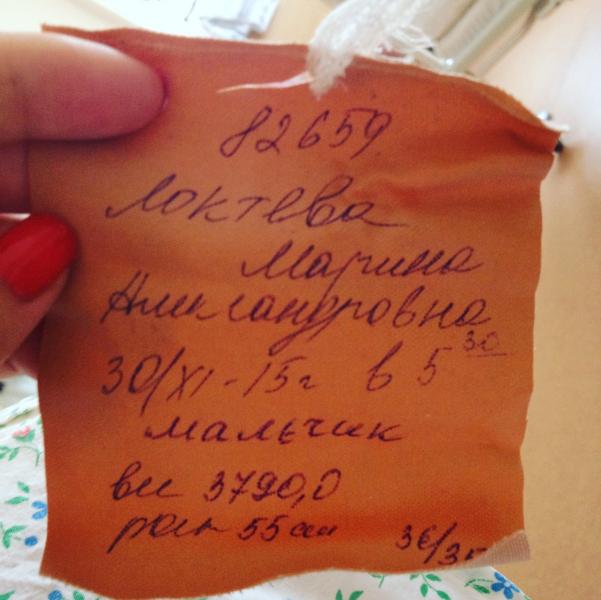 82659
Локтева
Марина
Александровна
30/XI-15г в 5 30
мальчик
вес 3790,0
рост 55см 36/35